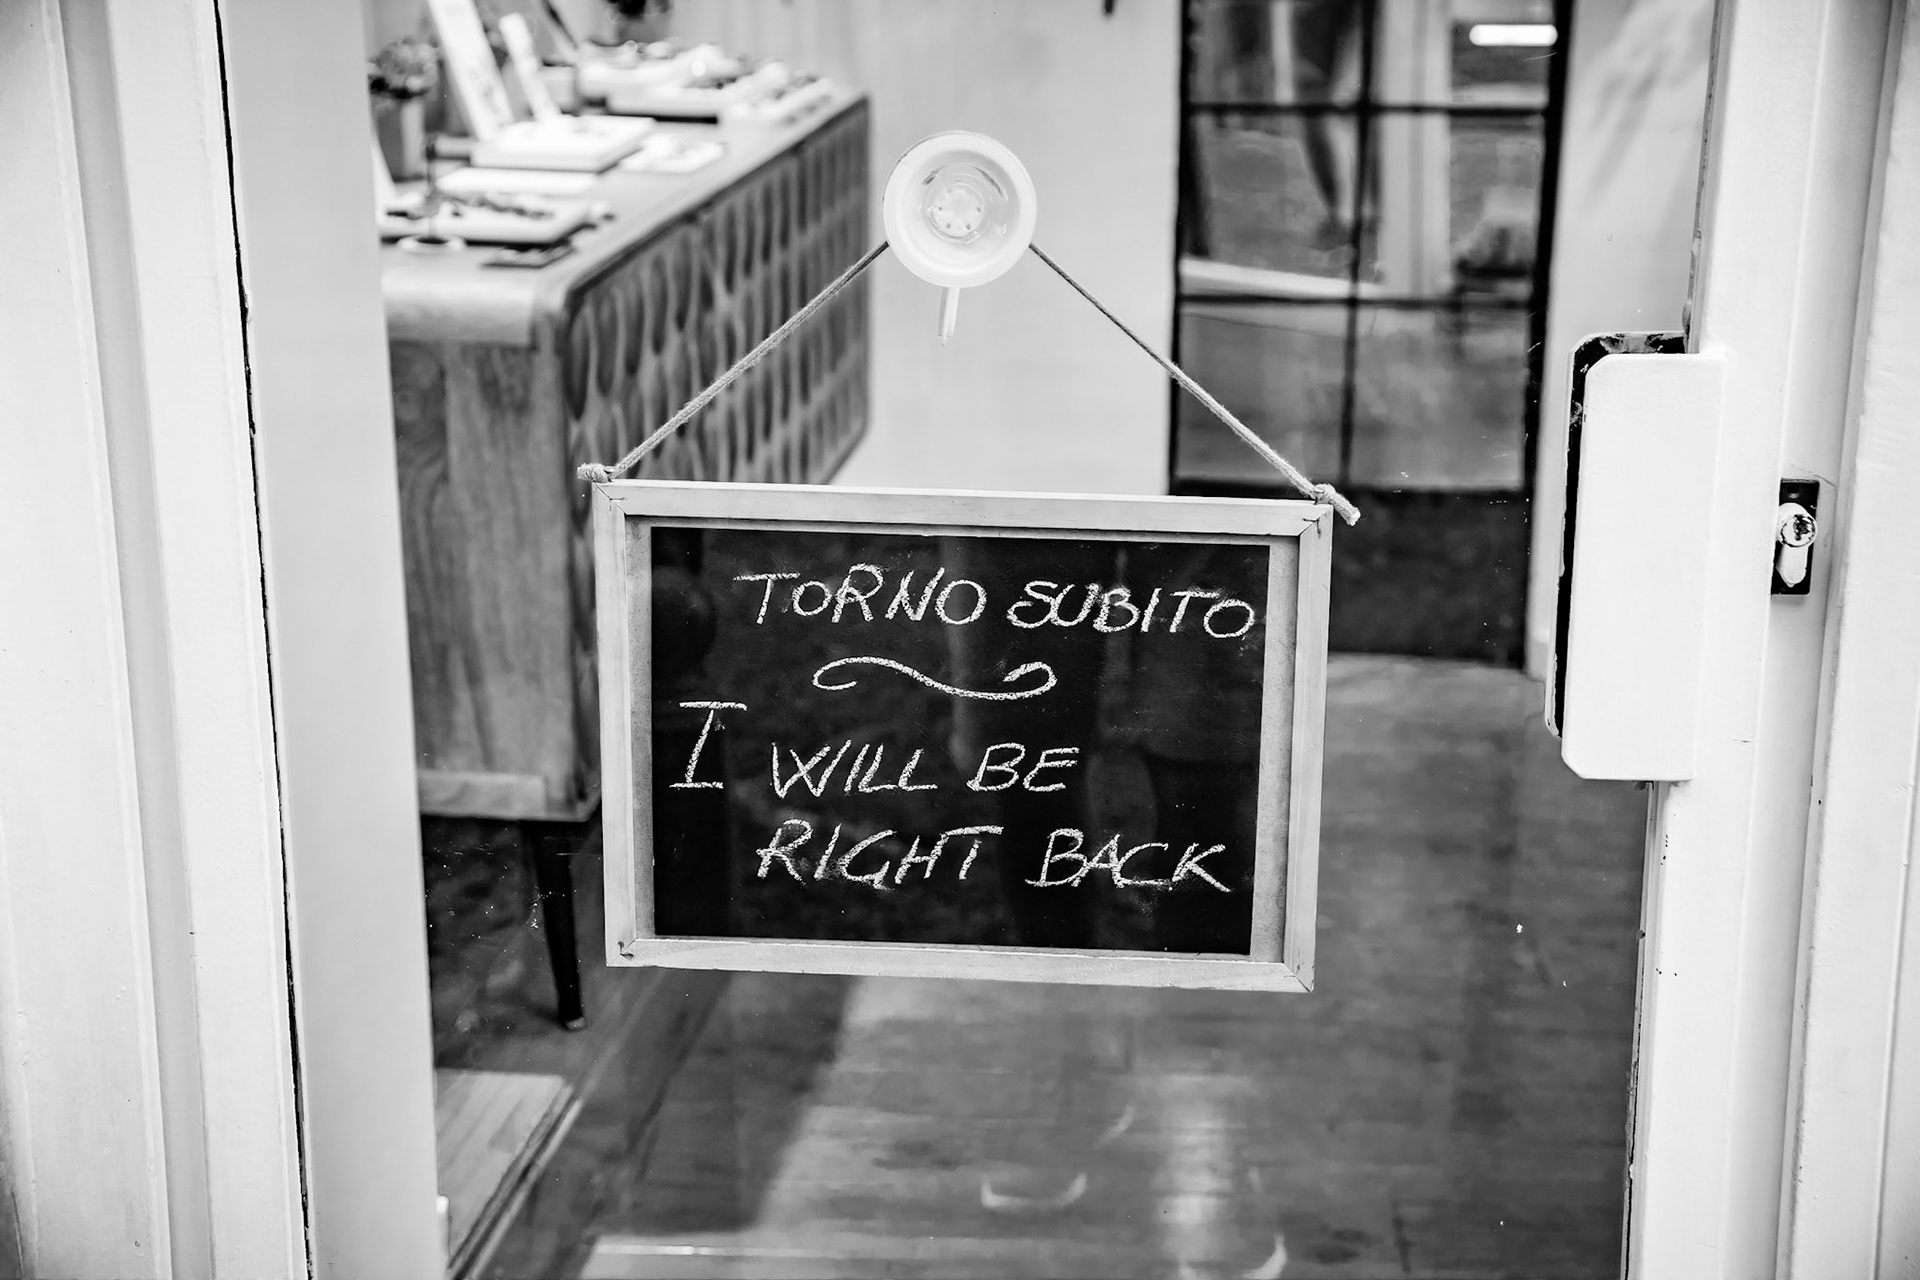 TORNO SUBITO
I WILL BE
RIGHT BACK